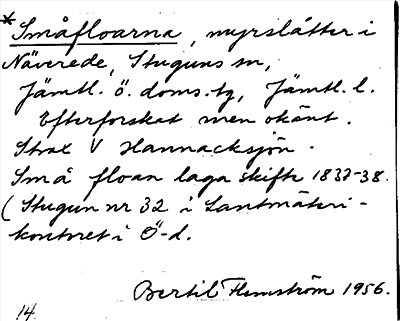 *Småfloarna, myrslåtter i
Näverede, Stuguns sn,
Jämtl. ö. doms.tg, Jämtl. l.
Efterforskat men okänt.
Strax V Hannacksjön.
Små floan laga skifte 1837-38.
(Stugun nr 32 i Lantmäteri-
kontoret i Ö-d.
Bertil Flemström 1956.
14.